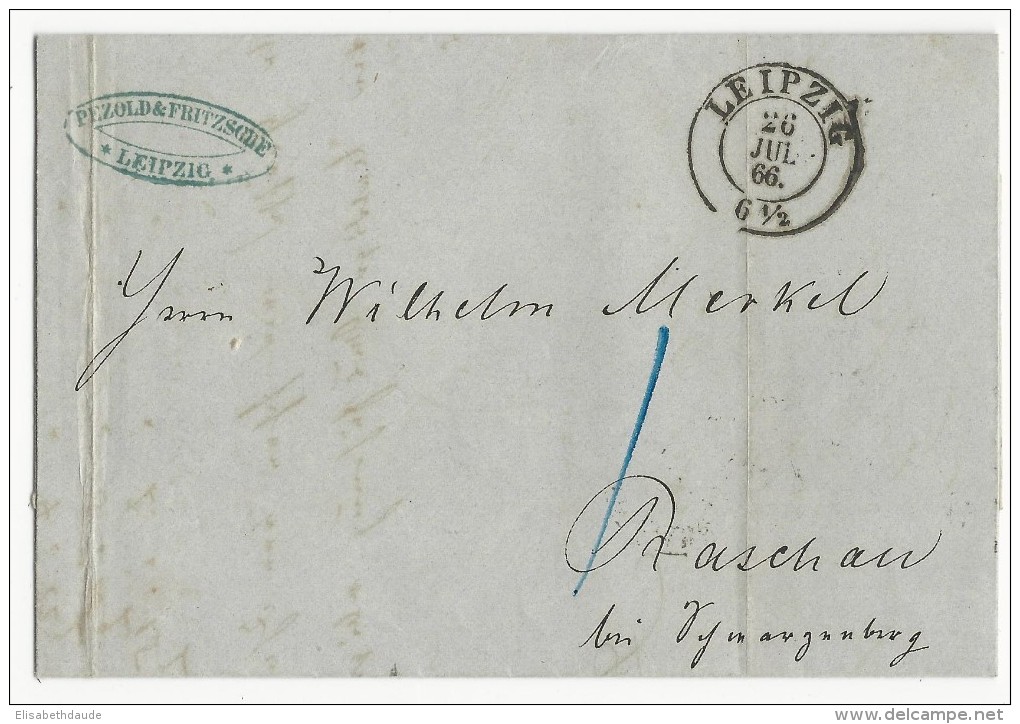 PEZOLD & FRITZSCHE
* LEIPZIG *
LEIPZIG
26
JUL
66.
6 1/2
Herrn Wilhelm Merkel
Raschau
bei Schwarzenberg
Elisabethdaude
delcampe.net